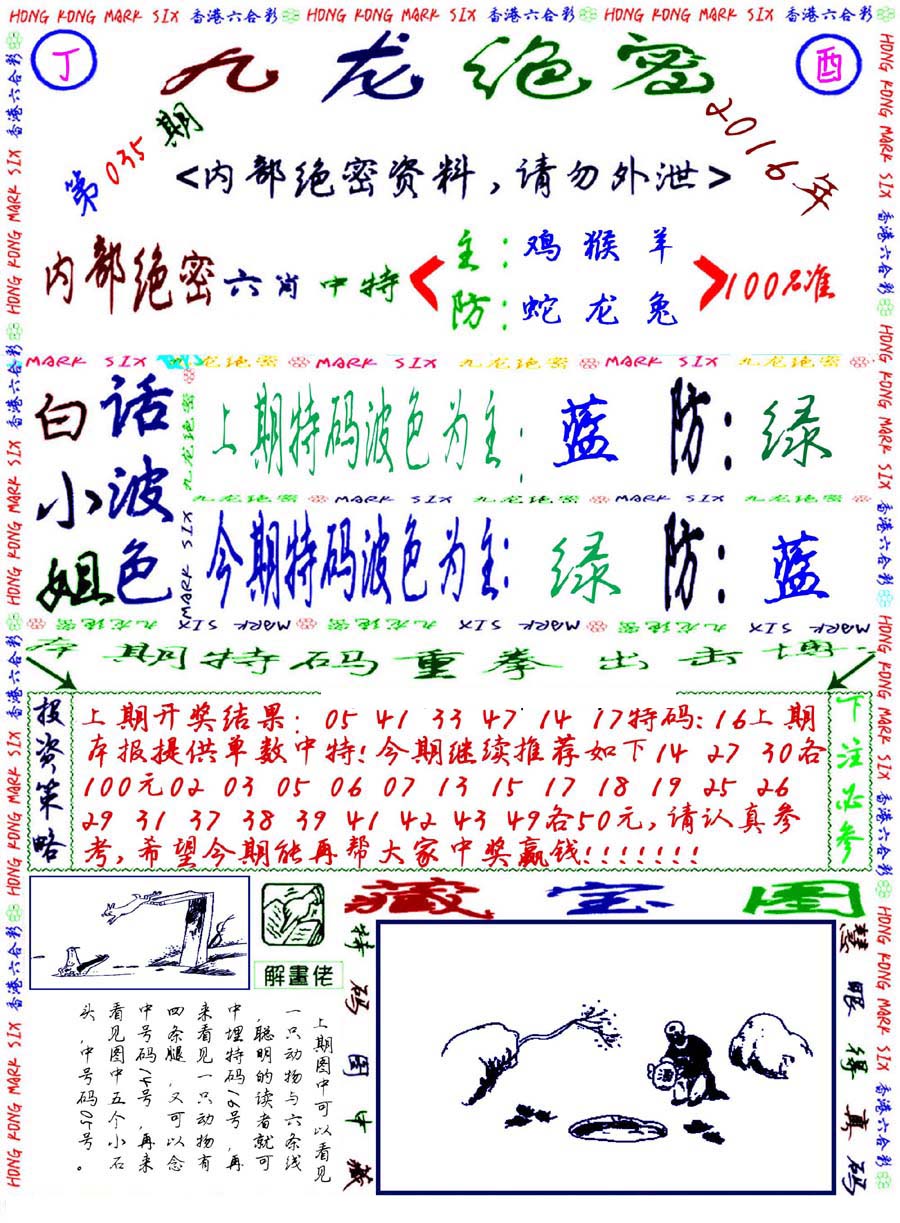 HONG KONG MARK SIX 香港六合彩 HONG KONG MARK SIX 香港六合彩 HONG KONG MARK SIX 香港六合彩
丁 九龙绝密 酉
第035期
2016年
<内部绝密资料,请勿外泄>
内部绝密六肖中特
主:鸡猴羊
防:蛇龙兔
100%准
MARK SIX 九龙绝密 MARK SIX 九龙绝密 MARK SIX 九龙绝密
白话
小波
姐色
上期特码波色为主:蓝 防:绿
九龙绝密 MARK SIX 九龙绝密 MARK SIX 九龙绝密
今期特码波色为主:绿 防:蓝
九龙绝密 MARK SIX 九龙绝密 MARK SIX 九龙绝密 MARK SIX
本期特码重拳出击博
投资策略
上期开奖结果: 05 41 33 47 14 17特码:16上期
本报提供单数中特!今期继续推荐如下14 27 30各
100元02 03 05 06 07 13 15 17 18 19 25 26
29 31 37 38 39 41 42 43 49各50元,请认真参
考,希望今期能再帮大家中奖赢钱!!!!!!!
下注必参
解畫佬
藏宝图
上期图中可以看见
一只动物与六条线
,聪明的读者就可
中埋特码16号,再
来看见一只动物有
四条腿,又可以念
中号码14号,再来
看见图中五个小石
头,中号码05号。
特码图中藏
酒
慧眼得真码